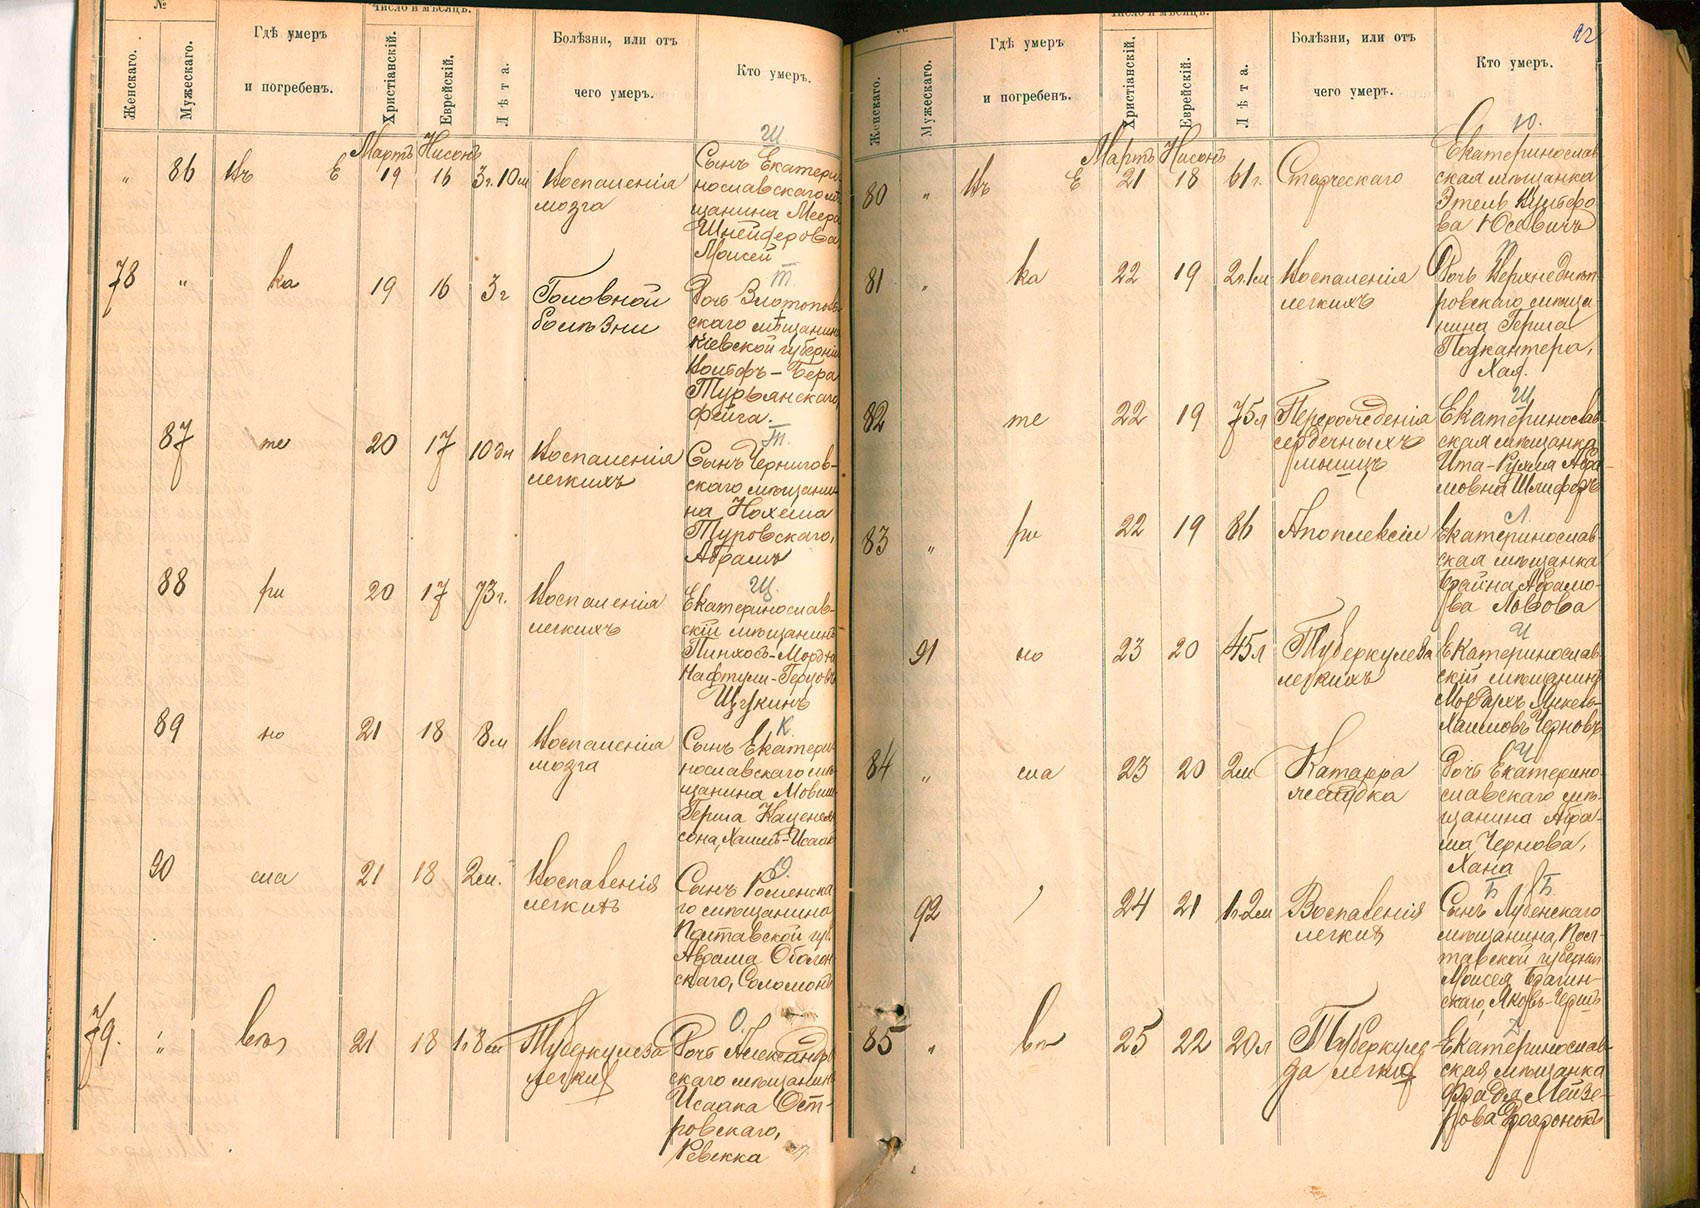 №
Число и мѣсяцъ.
Женскаго.
Мужескаго.
Гдѣ умеръ
и погребенъ.
Христіанскій.
Еврейскій.
Лѣта.
Болѣзни, или отъ
чего умеръ.
Кто умеръ.
Мартъ Нисонъ
Щ
„ 86 Въ Е 19 16 3г. 10м Воспаленія
мозга
Сынъ Екатери-
нославскаго мѣ-
щанина Меера
Шнейдерова
Моисей
Т
78 „ ка 19 16 3г Головной
болѣзни
Дочь Златополь-
скаго мѣщанина
Кіевской губерніи
Вольфъ-Бера
Турьянскаго,
Фейга.
Т.
87 те 20 17 10дн Воспаленія
легкихъ
Сынъ Чернигов-
скаго мѣщани-
на Нохема
Туровскаго,
Абрамъ
Щ
88 ри 20 17 73г. Воспаленія
легкихъ
Екатеринослав-
скій мѣщанинъ
Пинхосъ-Мордко
Нафтули-Герцовъ
Щукинъ
К.
89 но 21 18 8м Воспаленія
мозга
Сынъ Екатери-
нославскаго мѣ-
щанина Мовши-
Герша Каценель-
сона, Хаимъ-Исаакъ
О.
90 сла 21 18 2м. Воспаленія
легкихъ
Сынъ Роменска-
го мѣщанина
Полтавской губ.
Аврама Оболон-
скаго, Соломонъ
О.
79. „ вѣ 21 18 1г. 8м Туберкулеза
легкихъ
Дочь Александръ-
скаго мѣщанина
Исаака Ост-
ровскаго,
Ревекка
22
№
Число и мѣсяцъ.
Женскаго.
Мужескаго.
Гдѣ умеръ
и погребенъ.
Христіанскій.
Еврейскій.
Лѣта.
Болѣзни, или отъ
чего умеръ.
Кто умеръ.
Ю.
Мартъ Нисонъ
80 „ Въ Е 21 18 61г. Старческаго
Екатеринослав
ская мѣщанка
Этель Вульфо
ва Юсевичъ
81 „ ка 22 19 2г. 1м Воспаленія
легкихъ
Дочь Верхнеднѣп
ровскаго мѣща-
нина Герша
Подкантера,
Хая.
Ш
82 те 22 19 75л Перерожденія
сердечныхъ
мышцъ
Екатеринослав-
ская мѣщанка
Ита-Рухля Абра-
мовна Шлиферъ
Л.
83 „ ри 22 19 86 Апоплексіи
Екатеринослав-
ская мѣщанка
Брайна Абрамо-
ва Львова
Ч
91 но 23 20 45л Туберкулеза
легкихъ
Екатеринослав-
скій мѣщанинъ
Мордухъ Янкель-
Хаимовъ Черновъ
Ч
84 „ сла 23 20 2м Катарра
желудка
Дочь Екатерино
славскаго мѣ-
щанина Абра-
ма Чернова,
Хана
Б Б.
92 24 21 1г. 2м Воспаленія
легкихъ
Сынъ Лубенскаго
мѣщанина, Пол-
тавской губерніи
Моисея Брагин-
скаго, Яковъ-
85 „ вѣ 25 22 20л Туберкуле-
за легкихъ
Екатеринослав-
ская мѣщанка
Фрадля Лейзе-
рова